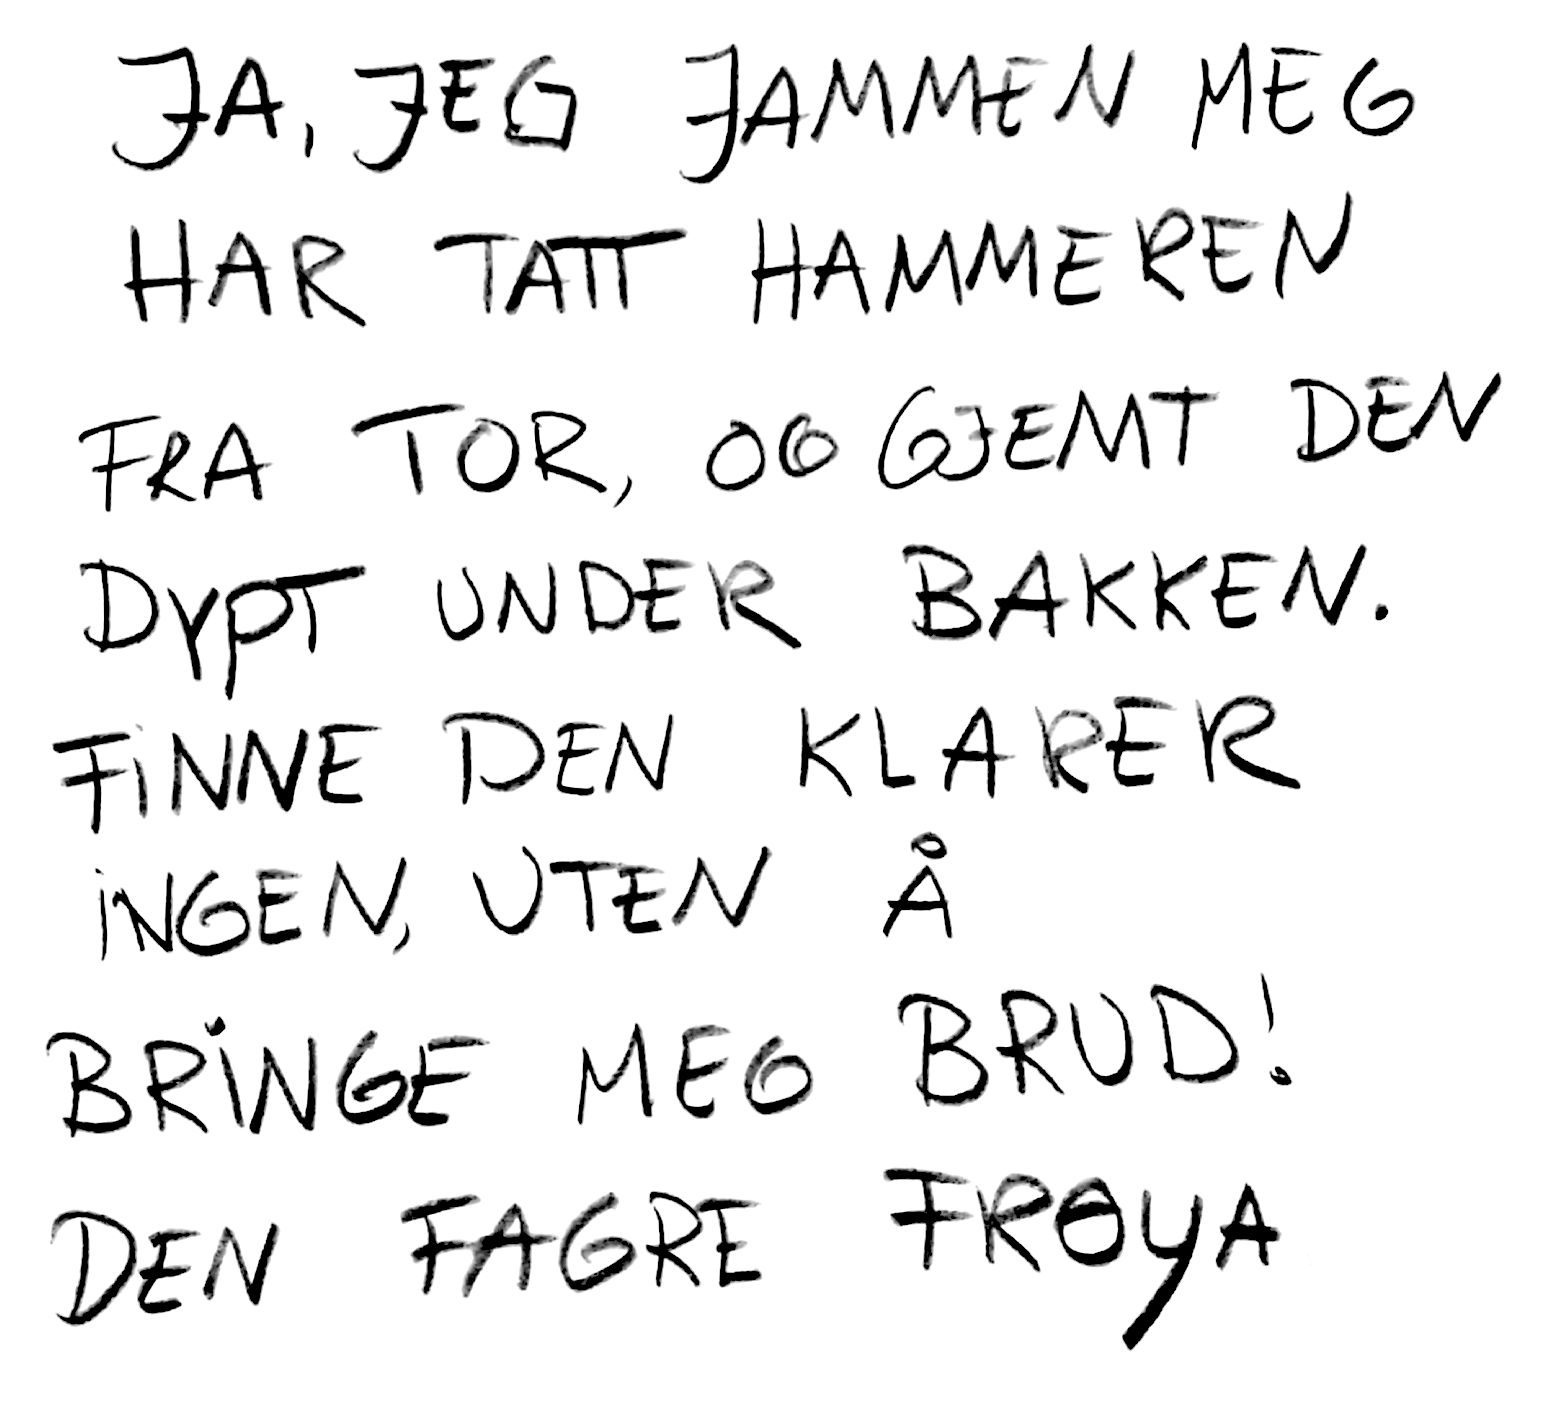 JA, JEG JAMMEN MEG
HAR TATT HAMMEREN
FRA TOR, OG GJEMT DEN
DYPT UNDER BAKKEN.
FINNE DEN KLARER
INGEN, UTEN Å
BRINGE MEG BRUD!
DEN FAGRE FRØYA